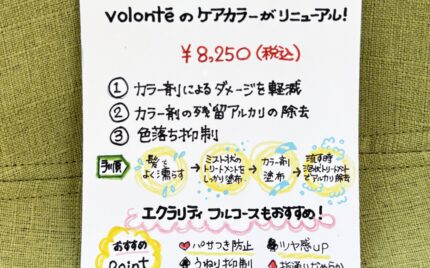 volontéのケアカラーがリニューアル!
¥8,250(税込)
① カラー剤によるダメージを軽減
② カラー剤の残留アルカリの除去
③ 色落ち抑制
手順
髪を
よく濡らす
→
ミスト状の
トリートメントを
しっかり塗布
→
カラー剤
塗布
→
流す時
泡状トリートメント
でアルカリ除去
エクラリティ フルコースもおすすめ!
おすすめ
Point
パサつき防止
ツヤ感up
うねり抑制
指通りなめらか